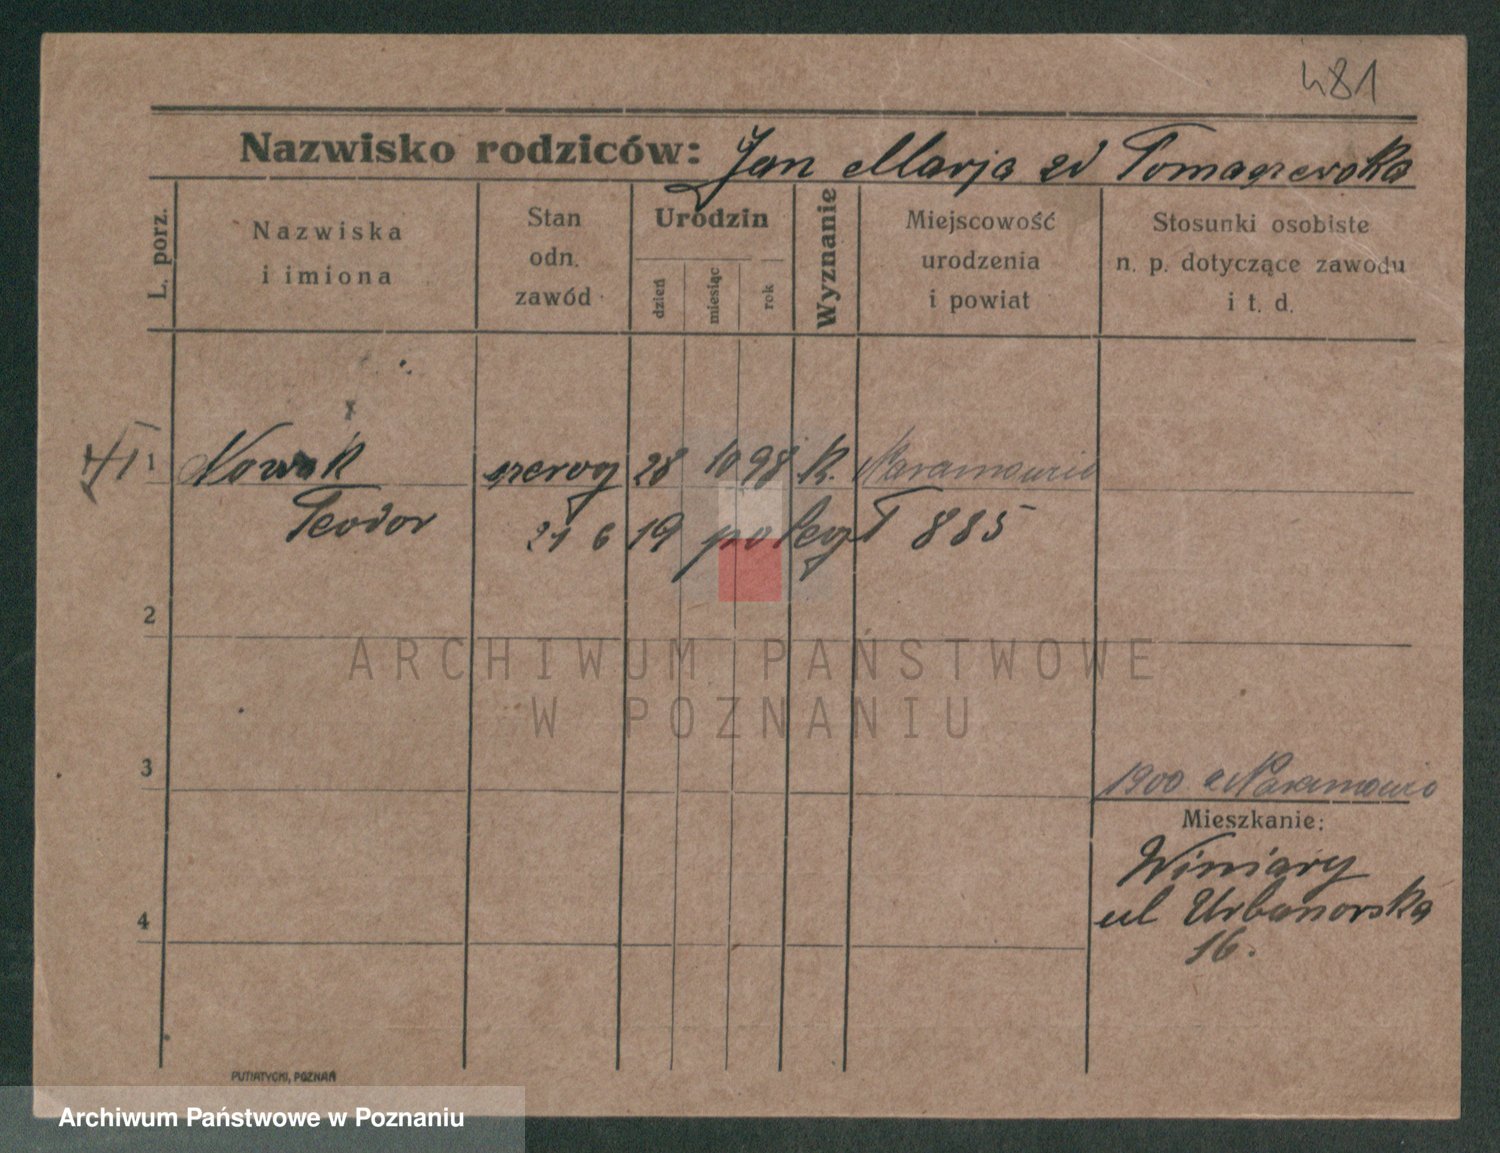 481
Nazwisko rodziców: Jan Marja zd Tomaszewska
L. porz.
Nazwiska
i imiona
Stan
odn.
zawód
Urodzin
dzień
miesiąc
rok
Wyznanie
Miejscowość
urodzenia
i powiat
Stosunki osobiste
n. p. dotyczące zawodu
i t. d.
1 Nowak szereg 28 10 98 K. Naramowic
Teodor 21 6 19 poległ 885
2
ARCHIWUM PAŃSTWOWE
W POZNANIU
3
1900 Naramowic
Mieszkanie:
Winiary
ul Urbanowska
16.
4
PUTIATYCKI, POZNAŃ
Archiwum Państwowe w Poznaniu